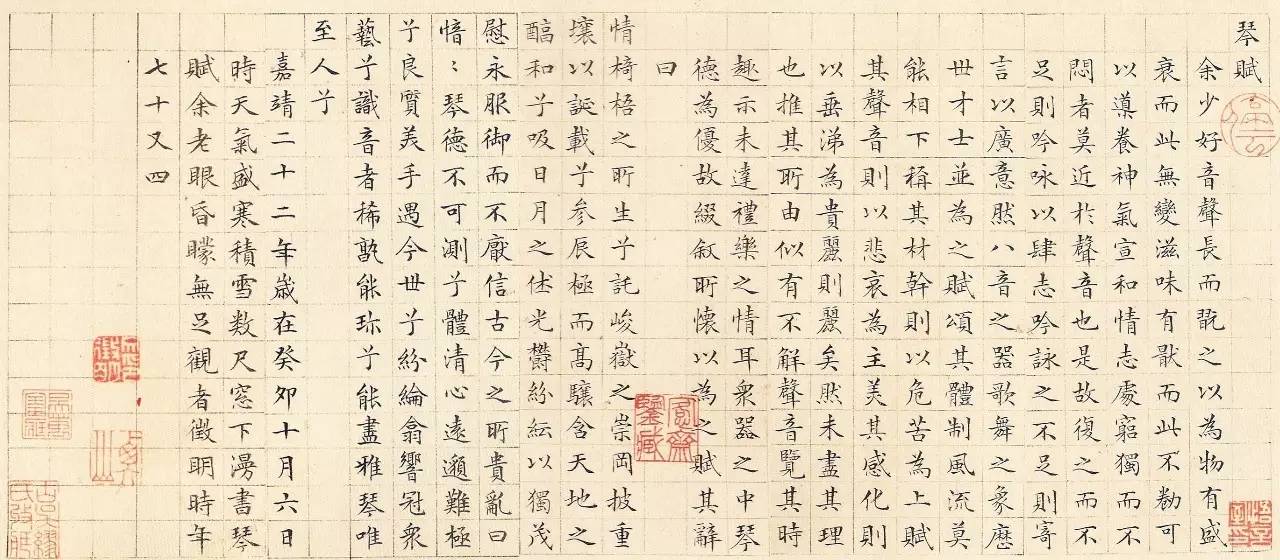 琴賦
余少好音聲長而翫之以為物有盛
衰而此無變滋味有猒而此不勌可
以導養神氣宣和情志處窮獨而不
悶者莫近於聲音也是故復之而不
足則吟咏以肆志吟詠之不足則寄
言以廣意然八音之器歌舞之象歷
世才士並為之賦頌其體制風流莫
能相下稱其材幹則以危苦為上賦
其聲音則以悲哀為主美其感化則
以垂涕為貴麗則麗矣然未盡其理
也推其所由似有不解聲音覽其時
趣示未達禮樂之情耳衆器之中琴
德為優故綴叙所懷以為之賦其辭
曰
情椅梧之所生兮託峻嶽之崇岡披重
壤以誕載兮參辰極而高驤含天地之
醕和兮吸日月之休光欝紛紜以獨茂
慰永服御而不厭信古今之所貴亂曰
愔〻琴德不可測兮體清心遠邈難極
兮良質美手遇今世兮紛綸翕響冠衆
藝兮識音者稀孰能珎兮能盡雅琴唯
至人兮
嘉靖二十二年歲在癸卯十月六日
時天氣盛寒積雪数尺窓下漫書琴
賦余老眼昏矇無足觀者徵明時年
七十又四